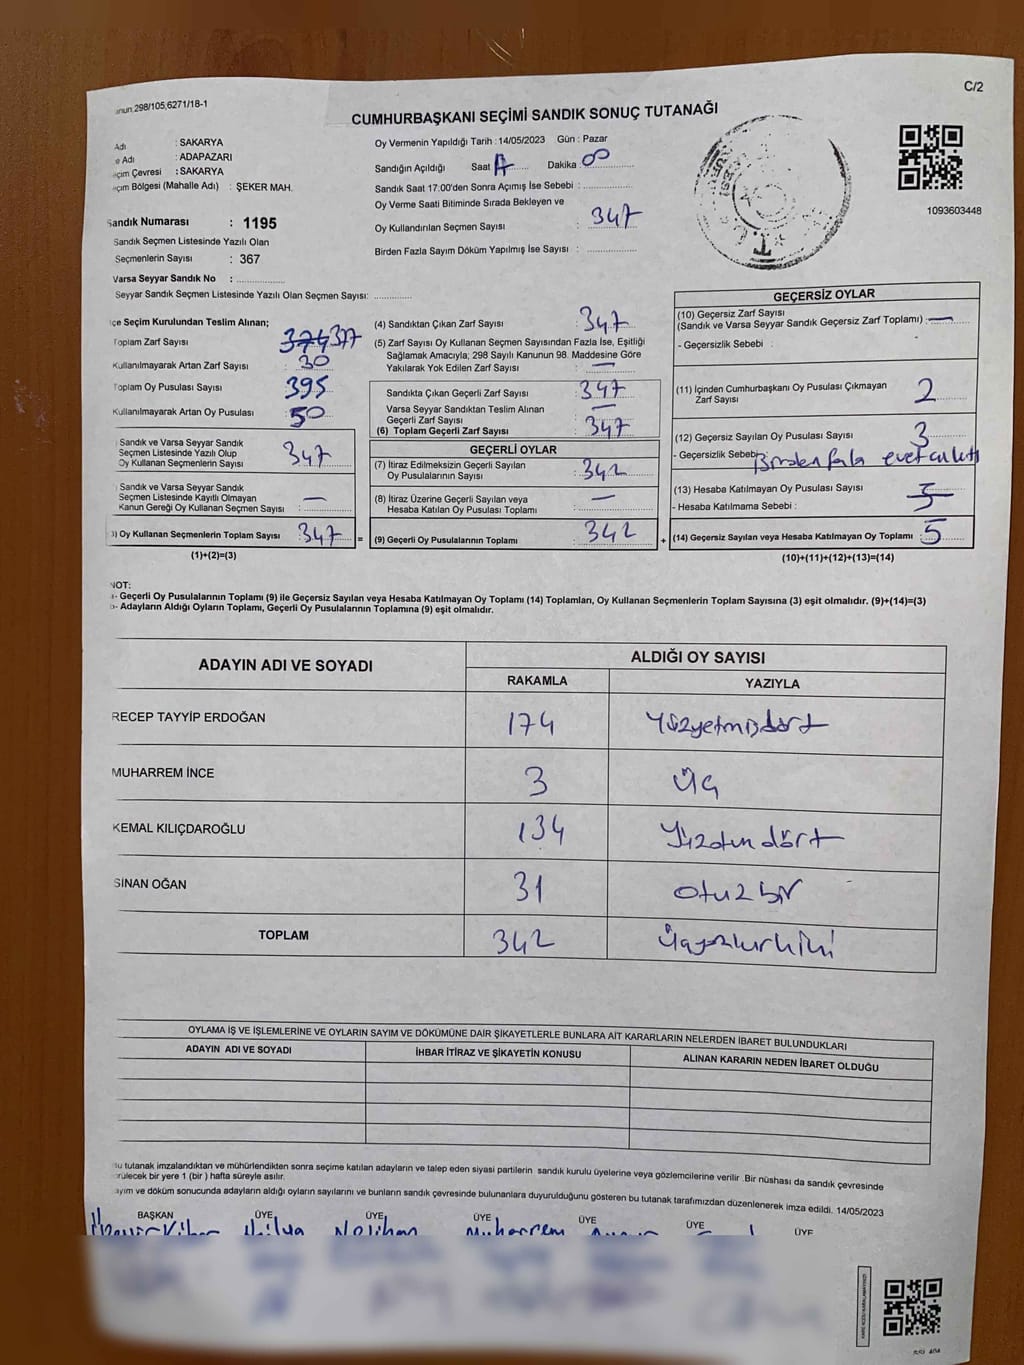 298/105,6271/18-1
C/2
CUMHURBAŞKANI SEÇİMİ SANDIK SONUÇ TUTANAĞI
Adı : SAKARYA
Adı : ADAPAZARI
Çevresi : SAKARYA
Bölgesi (Mahalle Adı) : ŞEKER MAH.
Sandık Numarası : 1195
Sandık Seçmen Listesinde Yazılı Olan
Seçmenlerin Sayısı : 367
Varsa Seyyar Sandık No :
Seyyar Sandık Seçmen Listesinde Yazılı Olan Seçmen Sayısı:
Oy Vermenin Yapıldığı Tarih : 14/05/2023 Gün : Pazar
Sandığın Açıldığı Saat Dakika :
Sandık Saat 17:00'den Sonra Açımış İse Sebebi :
Oy Verme Saati Bitiminde Sırada Bekleyen ve
Oy Kullandırılan Seçmen Sayısı : 347
Birden Fazla Sayım Döküm Yapılmış İse Sayısı :
1093603448
Seçim Kurulundan Teslim Alınan;
Toplam Zarf Sayısı 374 377
Kullanılmayarak Artan Zarf Sayısı 30
Toplam Oy Pusulası Sayısı 395
Kullanılmayarak Artan Oy Pusulası 50
Sandık ve Varsa Seyyar Sandık
Seçmen Listesinde Yazılı Olup
Oy Kullanan Seçmenlerin Sayısı 347
Sandık ve Varsa Seyyar Sandık
Seçmen Listesinde Kayıtlı Olmayan
Kanun Gereği Oy Kullanan Seçmen Sayısı : —
) Oy Kullanan Seçmenlerin Toplam Sayısı : 347 =
(1)+(2)=(3)
(4) Sandıktan Çıkan Zarf Sayısı : 347
(5) Zarf Sayısı Oy Kullanan Seçmen Sayısından Fazla İse, Eşitliği
Sağlamak Amacıyla; 298 Sayılı Kanunun 98. Maddesine Göre
Yakılarak Yok Edilen Zarf Sayısı : —
Sandıkta Çıkan Geçerli Zarf Sayısı : 347
Varsa Seyyar Sandıktan Teslim Alınan
Geçerli Zarf Sayısı : —
(6) Toplam Geçerli Zarf Sayısı : 347
GEÇERLİ OYLAR
(7) İtiraz Edilmeksizin Geçerli Sayılan
Oy Pusulalarının Sayısı : 342
(8) İtiraz Üzerine Geçerli Sayılan veya
Hesaba Katılan Oy Pusulası Toplamı : —
(9) Geçerli Oy Pusulalarının Toplamı : 342 +
GEÇERSİZ OYLAR
(10) Geçersiz Zarf Sayısı
(Sandık ve Varsa Seyyar Sandık Geçersiz Zarf Toplamı) : —
- Geçersizlik Sebebi :
(11) İçinden Cumhurbaşkanı Oy Pusulası Çıkmayan
Zarf Sayısı 2
(12) Geçersiz Sayılan Oy Pusulası Sayısı : 3
- Geçersizlik Sebebi : Birden fazla evet
(13) Hesaba Katılmayan Oy Pusulası Sayısı :
- Hesaba Katılmama Sebebi :
(14) Geçersiz Sayılan veya Hesaba Katılmayan Oy Toplamı : 5
(10)+(11)+(12)+(13)=(14)
NOT:
- Geçerli Oy Pusulalarının Toplamı (9) ile Geçersiz Sayılan veya Hesaba Katılmayan Oy Toplamı (14) Toplamları, Oy Kullanan Seçmenlerin Toplam Sayısına (3) eşit olmalıdır. (9)+(14)=(3)
- Adayların Aldığı Oyların Toplamı, Geçerli Oy Pusulalarının Toplamına (9) eşit olmalıdır.
ADAYIN ADI VE SOYADI
ALDIĞI OY SAYISI
RAKAMLA YAZIYLA
RECEP TAYYİP ERDOĞAN 174 Yüzyetmişdört
MUHARREM İNCE 3 Üç
KEMAL KILIÇDAROĞLU 134 Yüzotuzdört
SİNAN OĞAN 31 Otuzbir
TOPLAM 342 Üçyüzkırkiki
OYLAMA İŞ VE İŞLEMLERİNE VE OYLARIN SAYIM VE DÖKÜMÜNE DAİR ŞİKAYETLERLE BUNLARA AİT KARARLARIN NELERDEN İBARET BULUNDUKLARI
ADAYIN ADI VE SOYADI İHBAR İTİRAZ VE ŞİKAYETİN KONUSU ALINAN KARARIN NEDEN İBARET OLDUĞU
Bu tutanak imzalandıktan ve mühürlendikten sonra seçime katılan adayların ve talep eden siyasi partilerin sandık kurulu üyelerine veya gözlemcilerine verilir .Bir nüshası da sandık çevresinde
bir yere 1 (bir ) hafta süreyle asılır.
ve döküm sonucunda adayların aldığı oyların sayılarını ve bunların sandık çevresinde bulunanlara duyurulduğunu gösteren bu tutanak tarafımızdan düzenlenerek imza edildi. 14/05/2023
BAŞKAN ÜYE ÜYE ÜYE ÜYE ÜYE ÜYE
Hülya Neslihan Muharrem